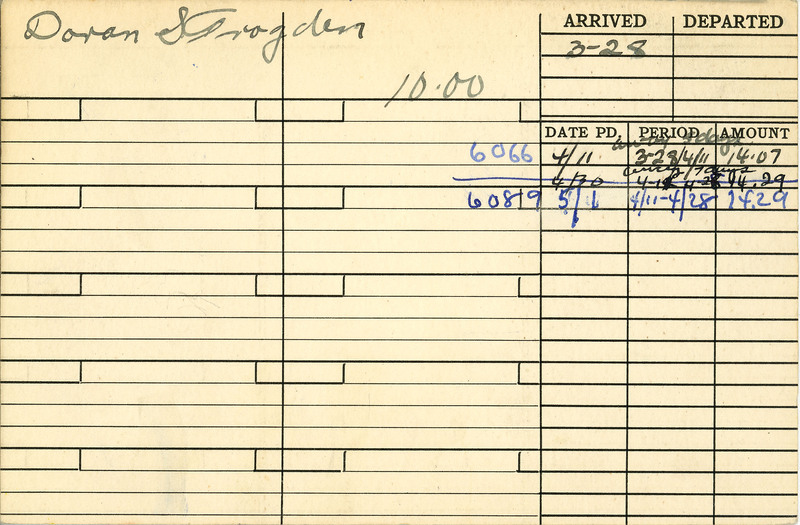 Doran S Trogden
ARRIVED DEPARTED
3-28
10.00
DATE PD. PERIOD AMOUNT
away days
6066 4/11 3-28/4/11 14.07
away 7 days
4/30 4-11 4-28 14.29
60819 5/1 4/11-4/28 14.29